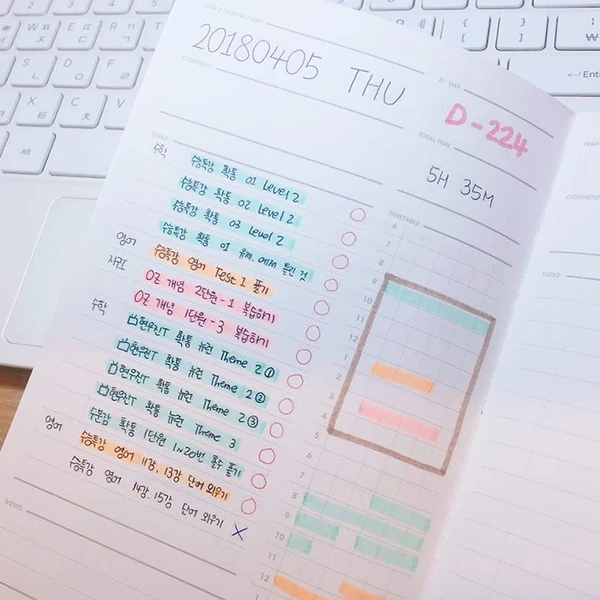 YEAR / MONTH / DAY
20180405 THU
D - DAY
D-224
COMMENT
TOTAL TIME
5H 35M
TASKS
수학 수능특강 확통 01 Level 2
수능특강 확통 02 Level 2
수능특강 확통 03 Level 2
수능특강 확통 01 유제, 예제 틀린 것
영어 수능특강 영어 Test 1 풀기
지구 OZ 개념 2단원-1 복습하기
OZ 개념 1단원-3 복습하기
수학 현우진T 확통 뉴런 Theme 2 ①
현우진T 확통 뉴런 Theme 2 ②
현우진T 확통 뉴런 Theme 2 ③
현우진T 확통 뉴런 Theme 3
수분감 확통 1단원 1~20번 풀수 풀기
영어 수능특강 영어 11강, 13강 단어 외우기
수능특강 영어 14강, 15강 단어 외우기 X
MEMO
TIMETABLE
6
7
8
9
10
11
12
1
2
3
4
5
8
9
10
11
12
COMMENT
TASKS
Alt
Enter